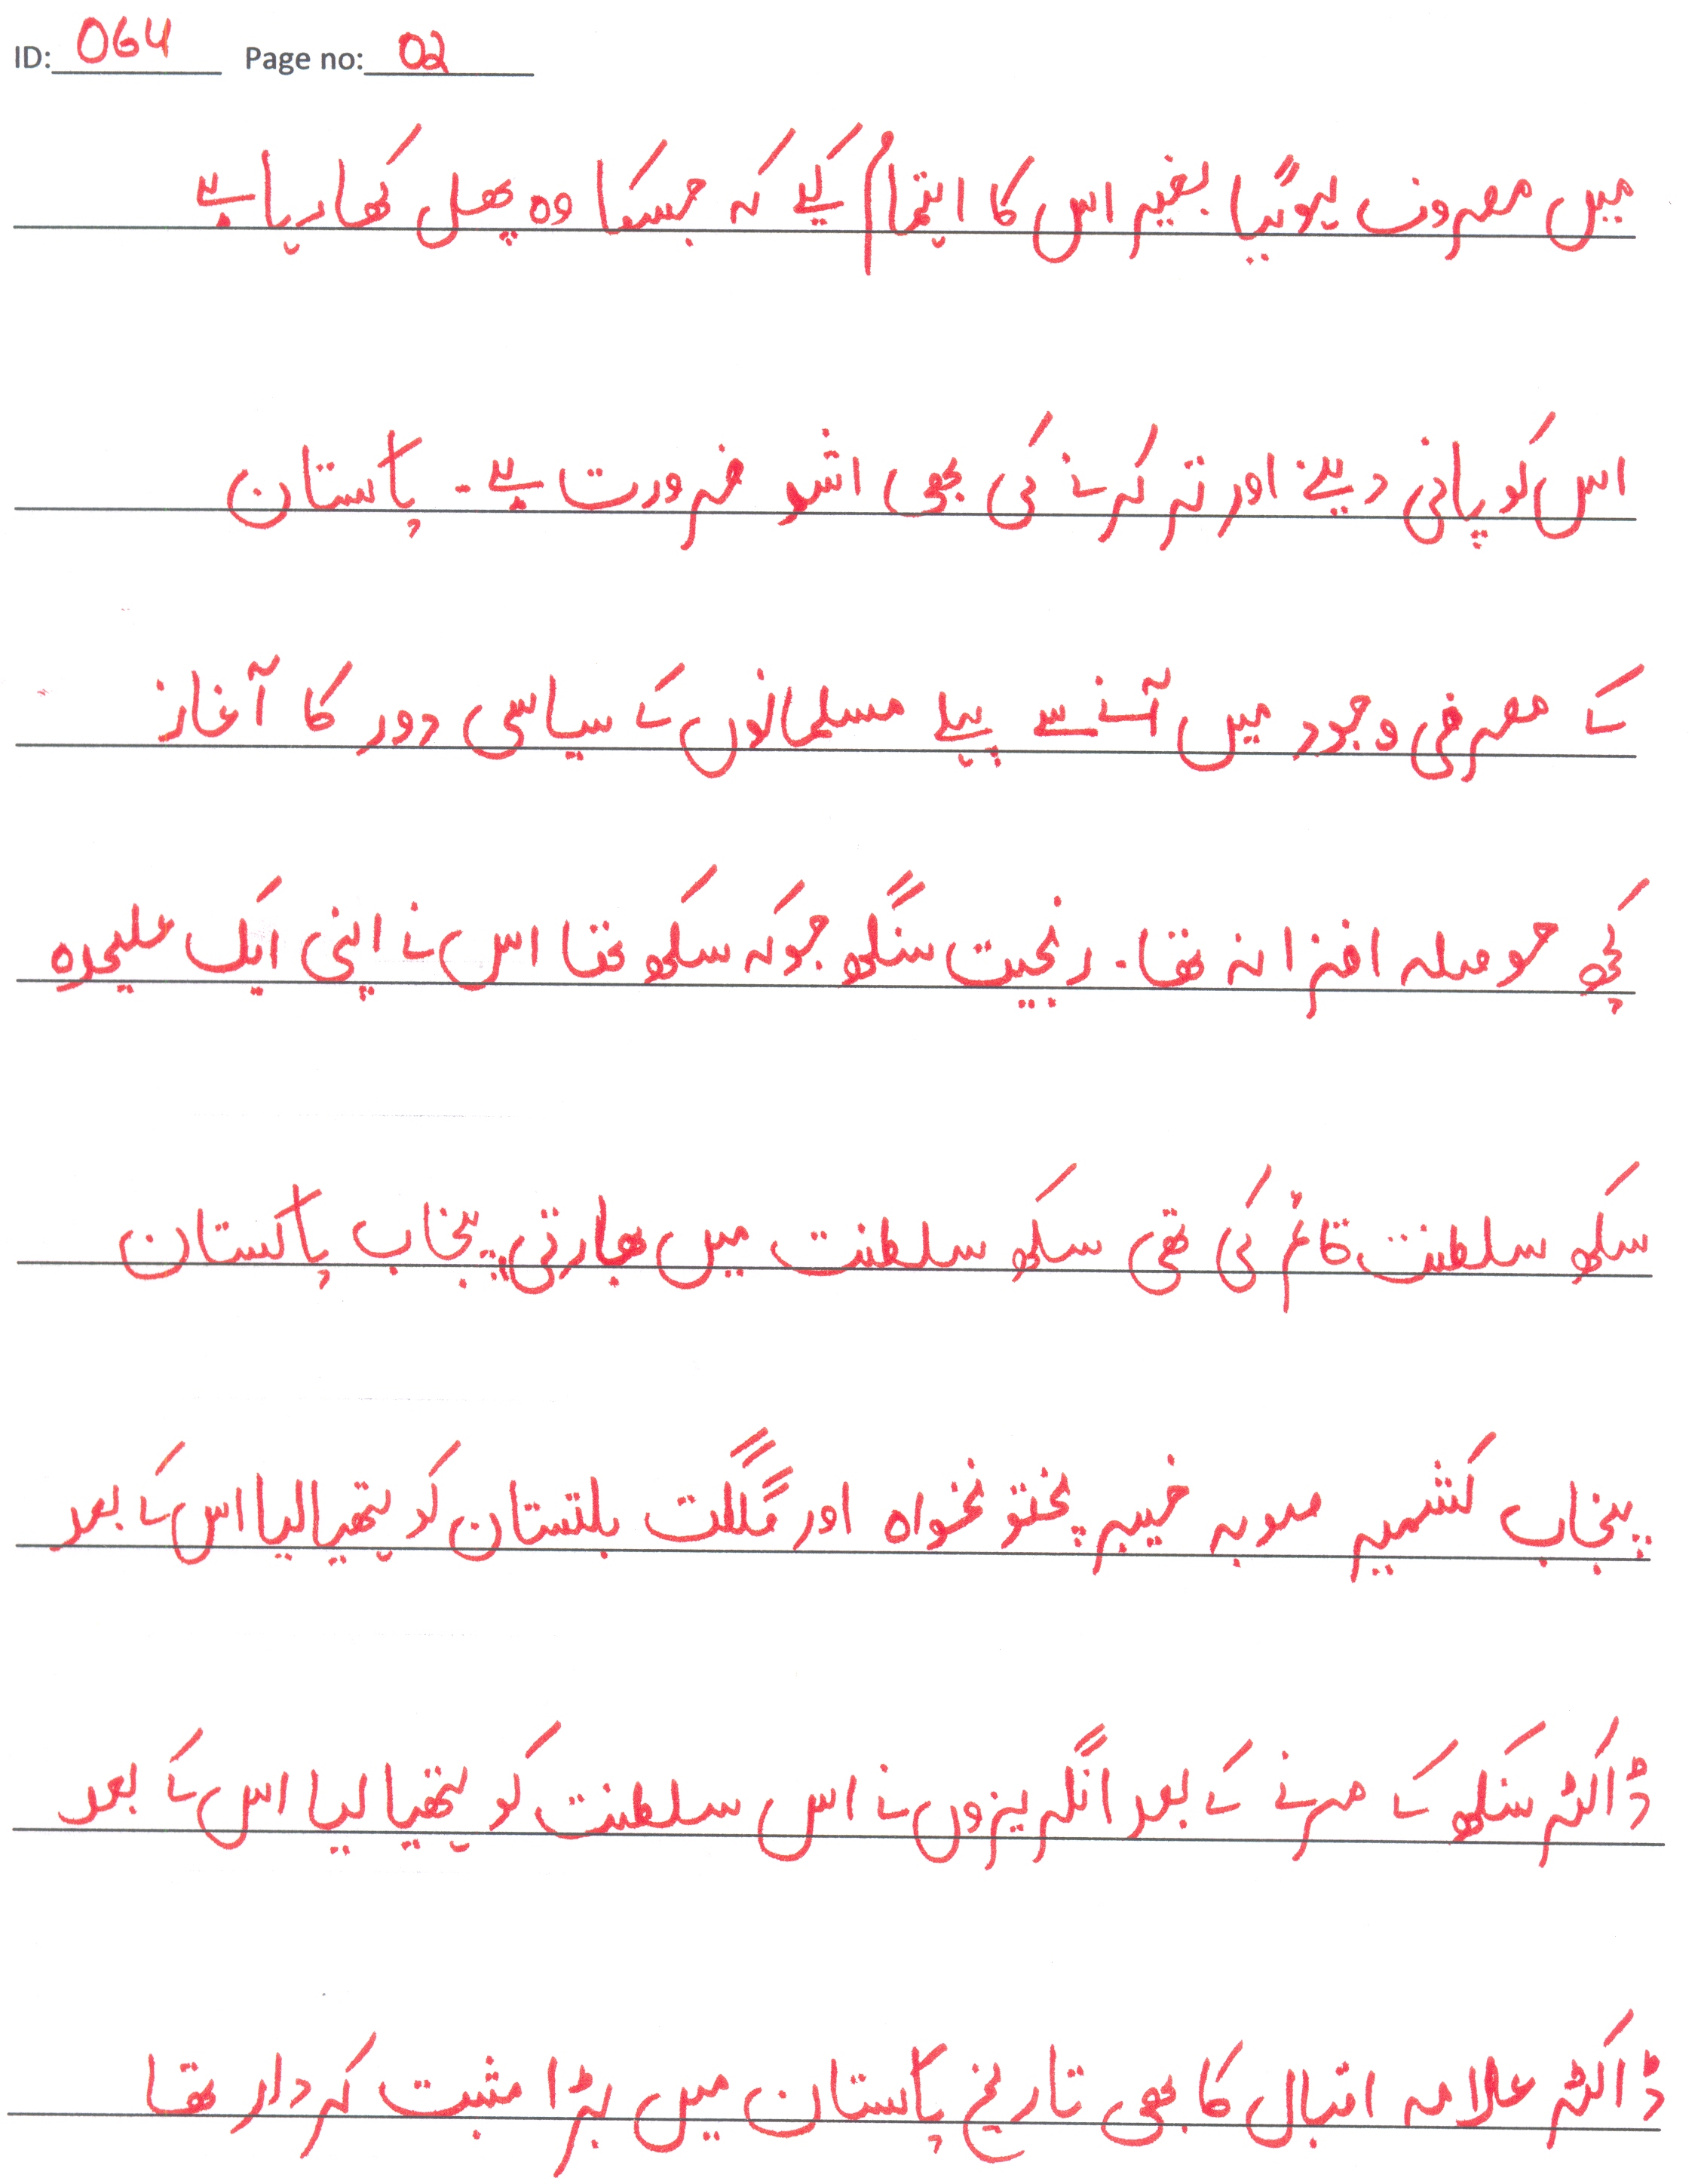 ID: 064 Page no: 02
میں مصروف ہوگیا بغیر اس کا اہتمام کیے کہ جسکا وہ پھل کھا رہا ہے
اس کو پانی دینے اور تر کرنے کی بھی اشو ضرورت ہے۔ پاکستان
کے معرفی وجود میں آنے سے پہلے مسلمانوں کے سیاسی دور کا آغاز
کچھ حوصلہ افزا نہ تھا۔ رنجیت سنگھ جوکہ سکھ تھا اس نے اپنی ایک علیحدہ
سکھ سلطنت قائم کی تھی سکھ سلطنت میں بھارتی پنجاب پاکستان
پنجاب کشمیر صوبہ خیبر پختونخواہ اور گلگت بلتستان کو ہتھیا لیا اس کے بعد
ڈاکٹر سنگھ کے مرنے کے بعد انگریزوں نے اس سلطنت کو ہتھیا لیا اس کے بعد
ڈاکٹر علامہ اقبال کا بھی تاریخ پاکستان میں بڑا مثبت کردار تھا